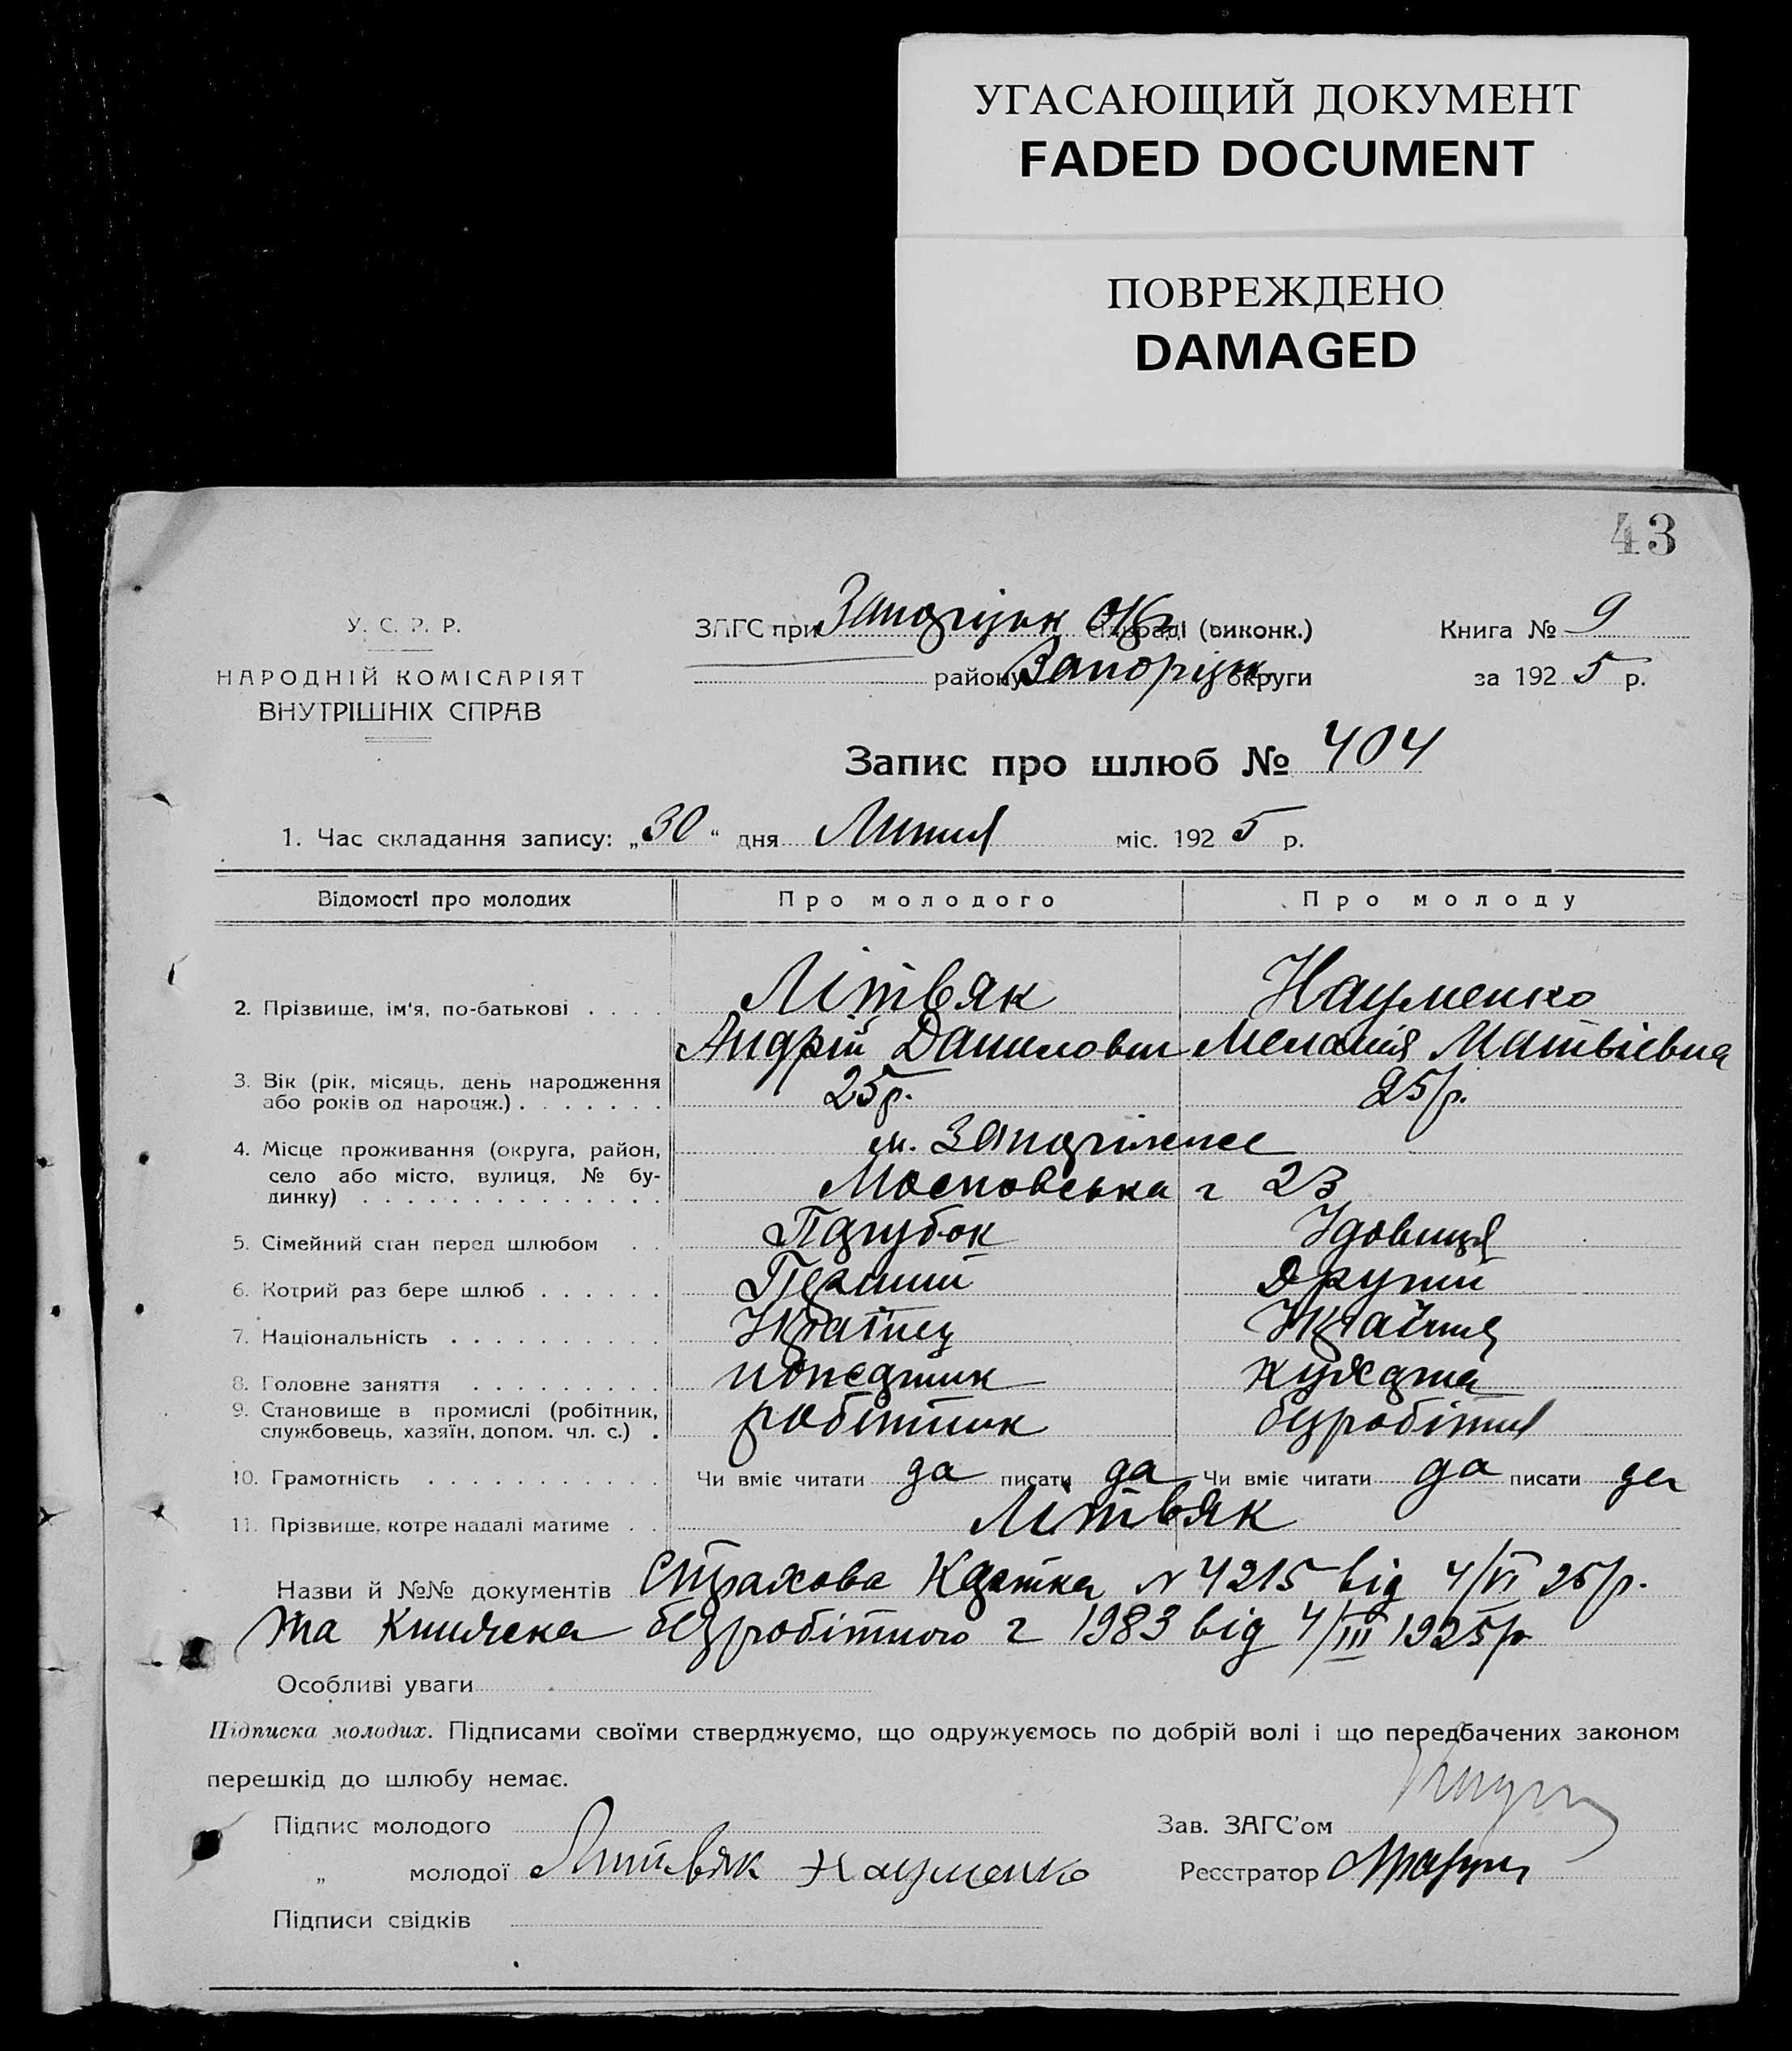 УГАСАЮЩИЙ ДОКУМЕНТ
FADED DOCUMENT
ПОВРЕЖДЕНО
DAMAGED
43
У. С. Р. Р.
НАРОДНІЙ КОМІСАРІЯТ
ВНУТРІШНІХ СПРАВ
ЗАГС при Запоріцьк (виконк.)
району Запоріцьк округи
Книга № 9
за 1925 р.
Запис про шлюб № 404
1. Час складання запису: „30" дня Липня міс. 1925 р.
Відомості про молодих Про молодого Про молоду
2. Прізвище, ім'я, по-батькові . . . . Літвяк Науменко
Андрій Данилович Меланія Матвієвна
3. Вік (рік, місяць, день народження
або років од народж.) . . . . . . . 25 р. 25 р.
4. Місце проживання (округа, район, м. Запоріжжє
село або місто, вулиця, № бу-
динку) . . . . . . . . . . . . . . Московська 23
5. Сімейний стан перед шлюбом . . Парубок Удовиця
6. Котрий раз бере шлюб . . . . . . Перший Другий
7. Національність . . . . . . . . . . Українец Українця
8. Головне заняття . . . . . . . . . робітник
9. Становище в промислі (робітник,
службовець, хазяїн, допом. чл. с.) . безробітня
10. Грамотність . . . . . . . . . . . Чи вміє читати да писати да Чи вміє читати да писати да
11. Прізвище, котре надалі матиме . . Літвяк
Назви й №№ документів Страхова Картка N 4215 від 4/VI 25 р.
та Книжка безробітного 1983 від 4/III 1925 р
Особливі уваги
Підписка молодих. Підписами своїми стверджуємо, що одружуємось по добрій волі і що передбачених законом
перешкід до шлюбу немає.
Підпис молодого
„ молодої Литвяк Науменко
Підписи свідків
Зав. ЗАГС'ом
Реєстратор